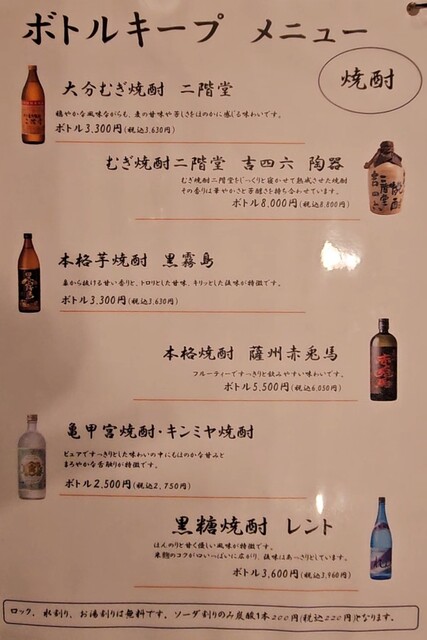 ボトルキープ メニュー
焼酎
大分むぎ焼酎 二階堂
穏やかな風味ながらも、麦の甘味や芳しさをほのかに感じる味わいです。
ボトル3,300円(税込3,630円)
むぎ焼酎二階堂 吉四六 陶器
むぎ焼酎二階堂をじっくりと寝かせて熟成させた焼酎
その香りは華やかさと芳醇さを持ち合わせています。
ボトル8,000円(税込8,800円)
二階堂
吉四六
本格芋焼酎 黒霧島
鼻から抜ける甘い香りと、トロリとした甘味、キリッとした後味が特徴です。
ボトル3,300円(税込3,630円)
本格焼酎 薩州赤兎馬
フルーティーですっきりと飲みやすい味わいです。
ボトル5,500円(税込6,050円)
赤兎馬
亀甲宮焼酎・キンミヤ焼酎
ピュアですっきりとした味わいの中にもほのかな甘みと
まろやかな舌触りが特徴です。
ボトル2,500円(税込2,750円)
黒糖焼酎 レント
ほんのりと甘く優しい風味が特徴です。
米麹のコクが口いっぱいに広がり、後味はあっさりとしています。
ボトル3,600円(税込3,960円)
ロック、水割り、お湯割りは無料です。ソーダ割りのみ炭酸1本200円(税込220円)となります。